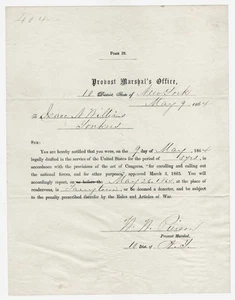 FORM 39.
Provost Marshal's Office,
10 District, State of New York
May 9 1864
To Isaac Williams
Yonkers
SIR:
You are hereby notified that you were, on the 9 day of May, 1864
legally drafted in the service of the United States for the period of years, in
accordance with the provisions of the act of Congress, "for enrolling and calling out
the national forces, and for other purposes," approved March 3, 1863. You will
accordingly report, on or before the May, at the place of
rendezvous, in Tarrytown, or be deemed a deserter, and be subject to
the penalty prescribed therefor by the Rules and Articles of War.
Provost Marshal,
10 Dist. of N.Y.